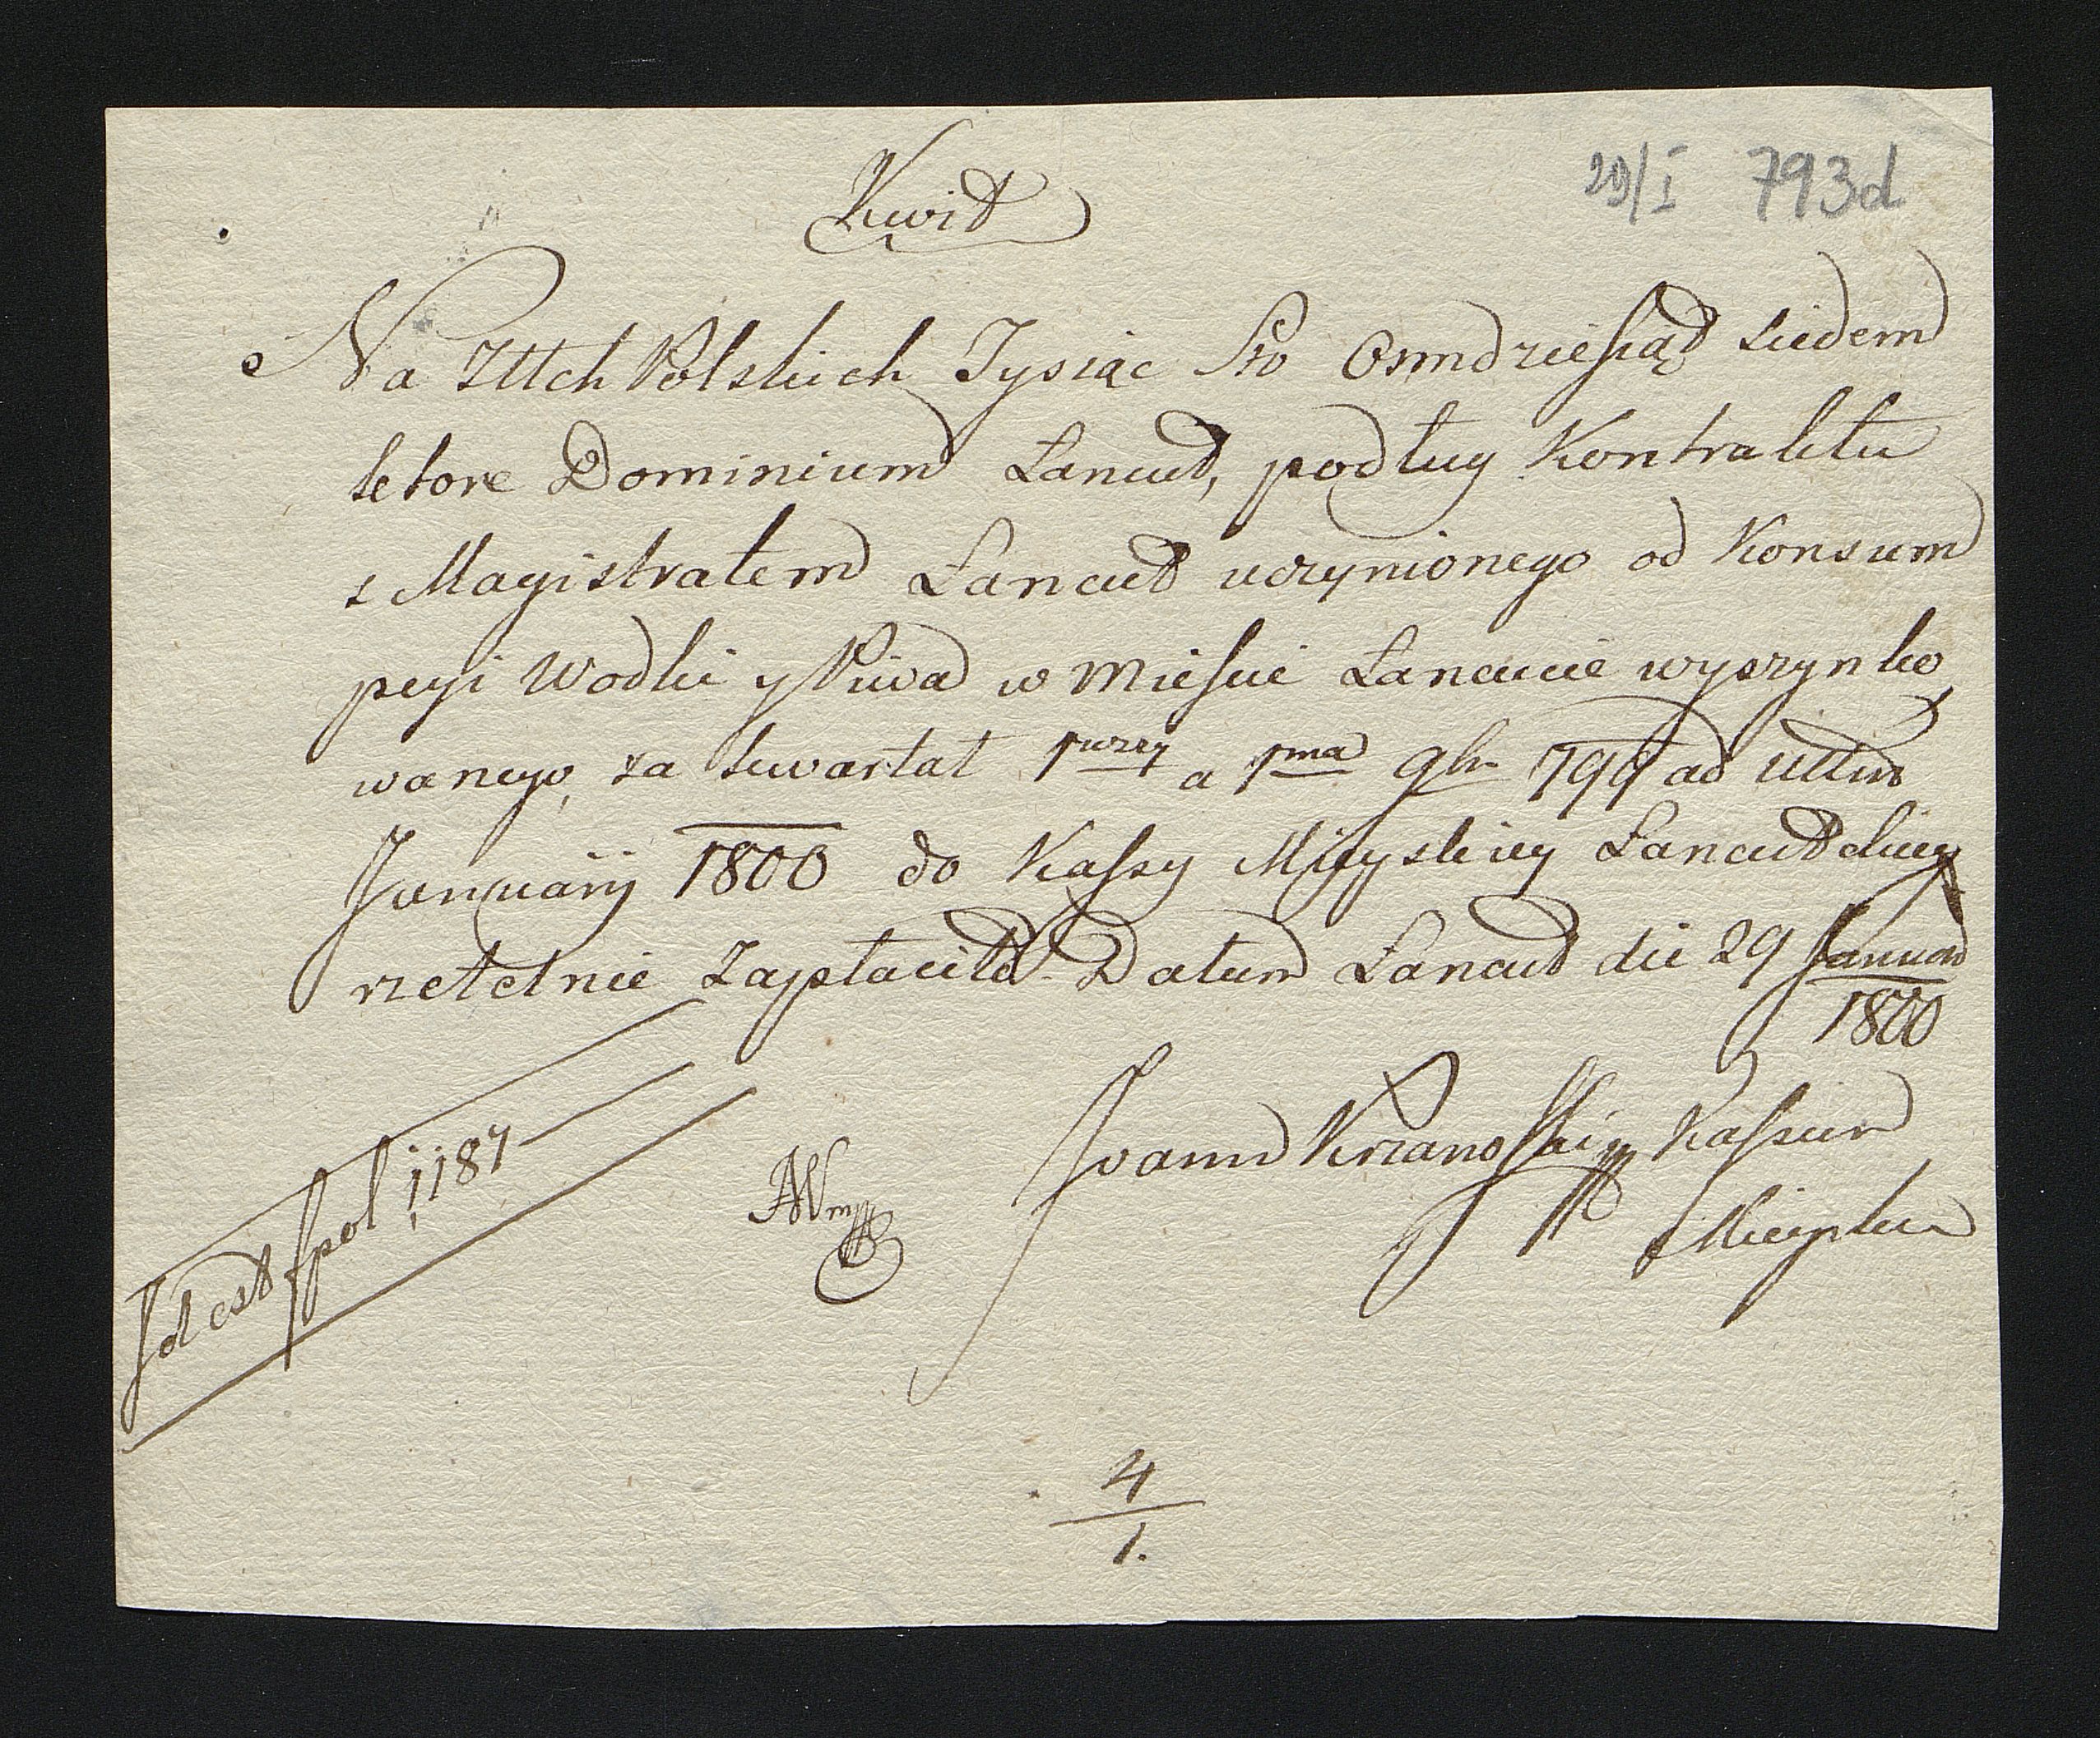 29/I 793d
Kwit
Na Złłch Polskich Tysiąc Sto Osmdziesiąt siedem
ktore Dominium Łancut, podług Kontraktu
z Magistratem Łancut uczynionego od Konsum
pcyi Wodki y Piwa w Mieście Łancucie wyszynko
wanego, za kwartał 1wszy a 1ma 9br 799 ad ultim
Januarij 1800 do Kassy Mieyskiey Łancutskiey
rzetelnie zapłaciło. Datum Łancut die 29 Januar
1800
Joann Krzanowski mp Kassier
Mieyski
Id est fpol 1187
AW mp
4
1.